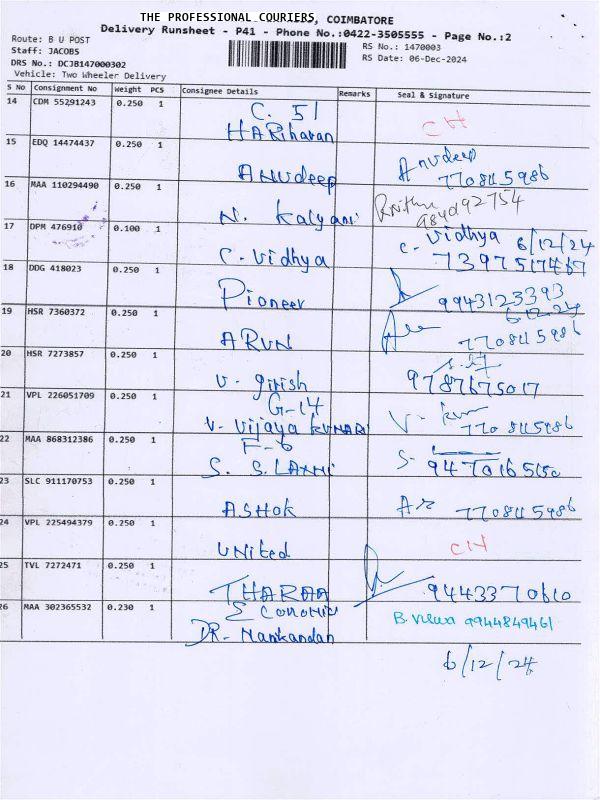 THE PROFESSIONAL COURIERS, COIMBATORE
Delivery Runsheet - P41 - Phone No.:0422-3505555 - Page No.:2
Route: B U POST
RS No.: 1470003
Staff: JACOBS
RS Date: 06-Dec-2024
DRS No.: DCJB147000302
Vehicle: Two Wheeler Delivery
S No Consignment No Weight PCS Consignee Details Remarks Seal & Signature
14 CDM 55291243 0.250 1 C. 51
HARiharan CH
15 EDQ 14474437 0.250 1 ANUdeep Anudeep
770845986
16 MAA 110294490 0.250 1 N. Kalyani
17 DPM 476910 0.100 1 C. Vidhya C. Vidhya 6/12/24
7397517467
18 DDG 418023 0.250 1 Pioneer 9943123393
6-12-24
19 HSR 7360372 0.250 1 ARUN 770845986
20 HSR 7273857 0.250 1 V. girish 9787675017
21 VPL 226051709 0.250 1 G-14
V. Vijaya KUMARI V- 770845986
22 MAA 868312386 0.250 1 F-6
S. S. LAXMI S-
23 SLC 911170753 0.250 1 ASHOK 770845986
24 VPL 225494379 0.250 1 UNited CH
25 TVL 7272471 0.250 1 THARAA 9443370610
26 MAA 302365532 0.230 1 Economic
DR- Manikandan B. 9944849461
6/12/24